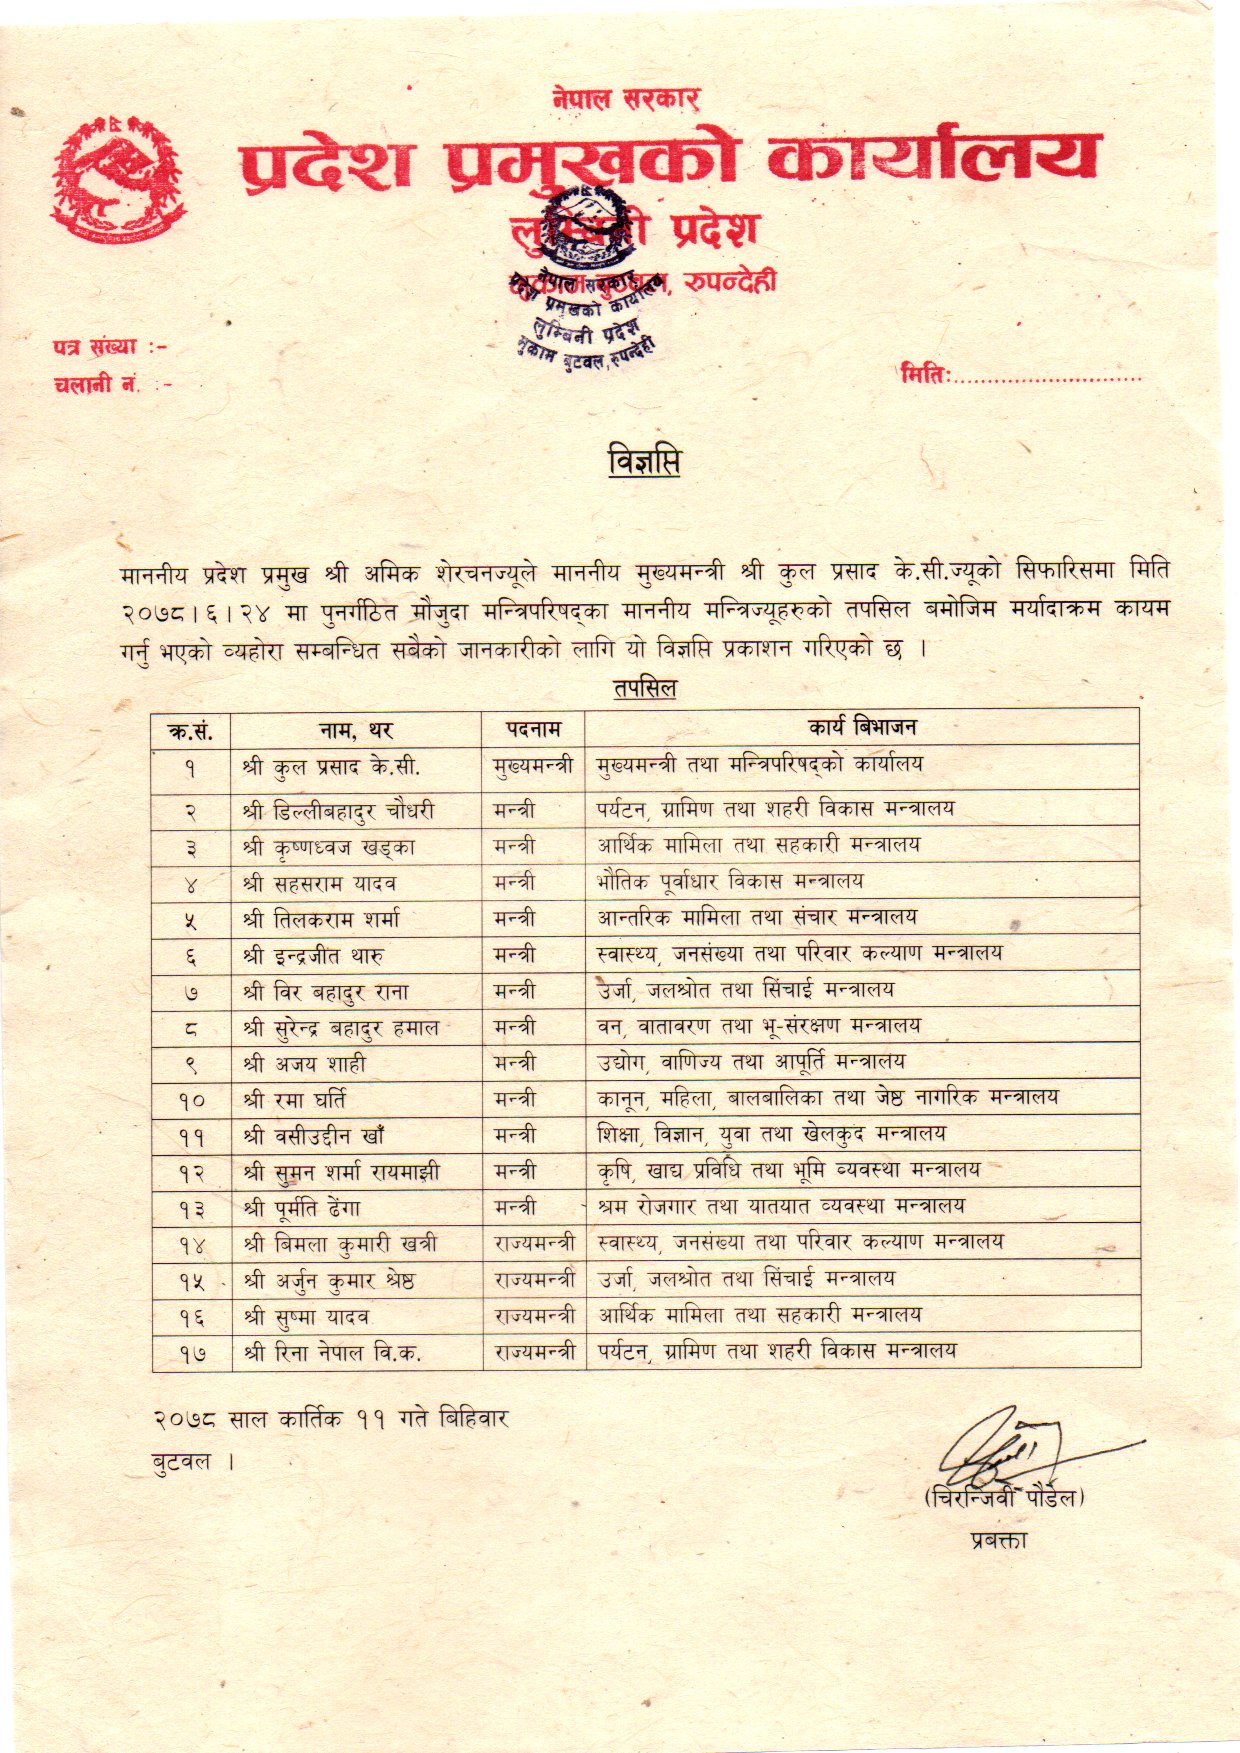 नेपाल सरकार
प्रदेश प्रमुखको कार्यालय
लुम्बिनी प्रदेश
मुकाम बुटवल, रुपन्देही
नेपाल सरकार
प्रदेश प्रमुखको कार्यालय
लुम्बिनी प्रदेश
मुकाम बुटवल, रुपन्देही
पत्र संख्या :-
चलानी नं. :-
मितिः............................
विज्ञप्ति
माननीय प्रदेश प्रमुख श्री अमिक शेरचनज्यूले माननीय मुख्यमन्त्री श्री कुल प्रसाद के.सी.ज्यूको सिफारिसमा मिति
२०७८।६।२४ मा पुनर्गठित मौजुदा मन्त्रिपरिषद्का माननीय मन्त्रिज्यूहरुको तपसिल बमोजिम मर्यादाक्रम कायम
गर्नु भएको व्यहोरा सम्बन्धित सबैको जानकारीको लागि यो विज्ञप्ति प्रकाशन गरिएको छ ।
तपसिल
क्र.सं. नाम, थर पदनाम कार्य बिभाजन
१ श्री कुल प्रसाद के.सी. मुख्यमन्त्री मुख्यमन्त्री तथा मन्त्रिपरिषद्को कार्यालय
२ श्री डिल्लीबहादुर चौधरी मन्त्री पर्यटन, ग्रामिण तथा शहरी विकास मन्त्रालय
३ श्री कृष्णध्वज खड्का मन्त्री आर्थिक मामिला तथा सहकारी मन्त्रालय
४ श्री सहसराम यादव मन्त्री भौतिक पूर्वाधार विकास मन्त्रालय
५ श्री तिलकराम शर्मा मन्त्री आन्तरिक मामिला तथा संचार मन्त्रालय
६ श्री इन्द्रजीत थारु मन्त्री स्वास्थ्य, जनसंख्या तथा परिवार कल्याण मन्त्रालय
७ श्री विर बहादुर राना मन्त्री उर्जा, जलश्रोत तथा सिंचाई मन्त्रालय
८ श्री सुरेन्द्र बहादुर हमाल मन्त्री वन, वातावरण तथा भू-संरक्षण मन्त्रालय
९ श्री अजय शाही मन्त्री उद्योग, वाणिज्य तथा आपूर्ति मन्त्रालय
१० श्री रमा घर्ति मन्त्री कानून, महिला, बालबालिका तथा जेष्ठ नागरिक मन्त्रालय
११ श्री वसीउद्दीन खाँ मन्त्री शिक्षा, विज्ञान, युवा तथा खेलकुद मन्त्रालय
१२ श्री सुमन शर्मा रायमाझी मन्त्री कृषि, खाद्य प्रविधि तथा भूमि व्यवस्था मन्त्रालय
१३ श्री पूर्मति ढेंगा मन्त्री श्रम रोजगार तथा यातयात व्यवस्था मन्त्रालय
१४ श्री बिमला कुमारी खत्री राज्यमन्त्री स्वास्थ्य, जनसंख्या तथा परिवार कल्याण मन्त्रालय
१५ श्री अर्जुन कुमार श्रेष्ठ राज्यमन्त्री उर्जा, जलश्रोत तथा सिंचाई मन्त्रालय
१६ श्री सुष्मा यादव राज्यमन्त्री आर्थिक मामिला तथा सहकारी मन्त्रालय
१७ श्री रिना नेपाल वि.क. राज्यमन्त्री पर्यटन, ग्रामिण तथा शहरी विकास मन्त्रालय
२०७८ साल कार्तिक ११ गते बिहिवार
बुटवल ।
(चिरन्जिवी पौडेल)
प्रबक्ता